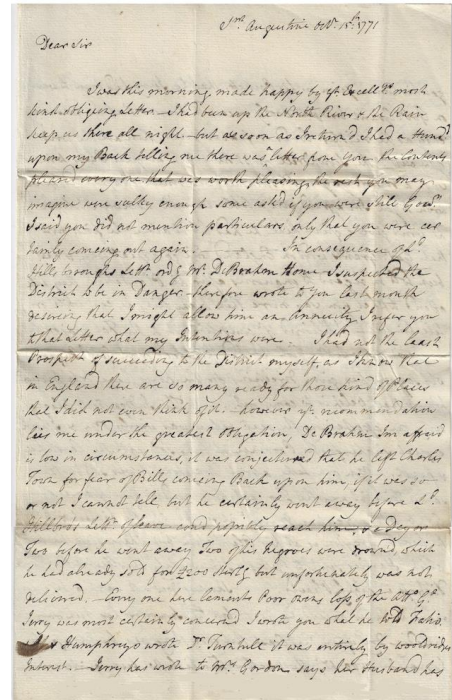 St. Augustine Octr. 15th. 1771
Dear Sir
I was this morning made happy by yr. Excellys. most
kind obliging Letter – I had been up the North River & the Rain
keep us there all night – but as soon as I return'd I had a Hund
upon my Back telling me there was letters from You. the Contents
pleased every one that was worth pleasing, the rest you may
imagine were sulky enough some ask'd if you were still Govr.
I said you did not mention particulars only that you were cer
tainly comeing out again. In consequence of Ld.
Hillsbroughs Letr. ordg. Mr. DeBrahm Home I suspected the
District to be in Danger – therefore wrote to you last month
desireing that I might allow him an Annuity I refer you
to that Letter what my Intentions were. I had not the least
Prospect of succeeding to the District myself, as I know that
in England there are so many ready for those kind of Places
that I did not even think of it – however yr. recommendation
lies me under the greatest Obligation, De Brahm I'm afraid
is low in circumstances, it was conjectured that he left Charles
Town for fear of Bills comeing Back upon him, if it was so
or not I cannot tell but he certainly went away before Ld.
Hillbro's Letr. of leave could possible reach him, & a day or
Two before he went away Two of his Negroes were drown'd which
he had already sold for £200 Sterlg. but unfortunately was not
delivered. – Every one here laments Poor Owens loss of the
Jerry was most certainly concern'd I wrote you what he told Fatio.
Humphreys wrote Dr. Turnbull it was entirely by Wooldridges
Interest. – Jerry has wrote to Mrs. Gordon says her Husband has